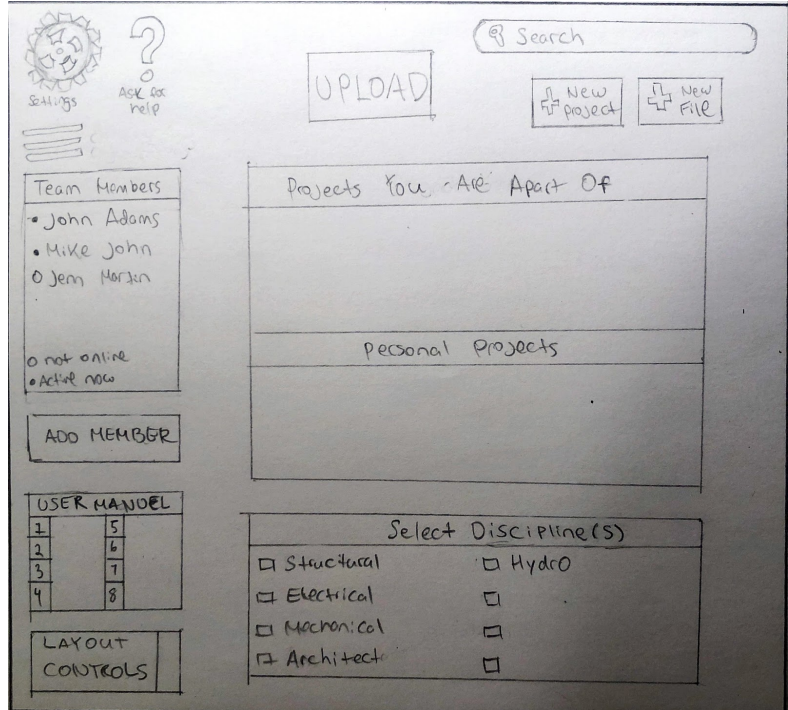 Search
Settings
Ask for
help
UPLOAD
New
project
New
File
Team Members
John Adams
Mike John
Jem Martin
not online
Active now
ADD MEMBER
USER MANUEL
1 5
2 6
3 7
4 8
LAYOUT
CONTROLS
Projects You Are Apart Of
Personal Projects
Select Discipline(s)
Structural
Hydro
Electrical
Mechanical
Architect